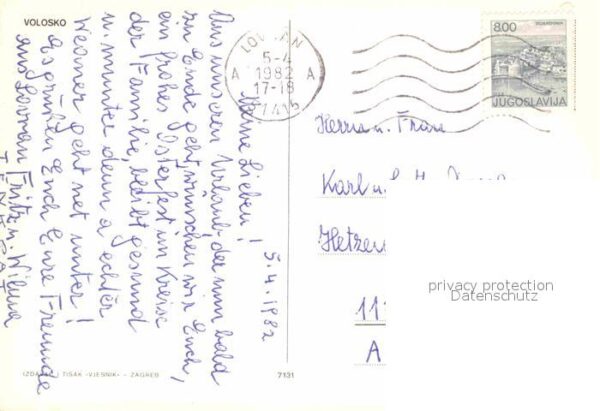 VOLOSKO
5.4.1982
Meine Lieben!
Aus unserem Urlaub, der nun bald
zu Ende geht, wünschen wir Euch,
ein frohes Osterfest im Kreise
der Familie, bleibt gesund
u. munter denn a echter
Weaner geht net unter!
Es grüßen Euch Eure Freunde
aus Lovran Fritz u. Wilma
LOVRAN
5-4
A 1982 A
17-18
51415
8.00
JUGOSLAVIJA
Herrn u. Frau
Karl u.
Hetzen
11
A
privacy protection
Datenschutz
IZDANJE I TISAK «VJESNIK» - ZAGREB
7131